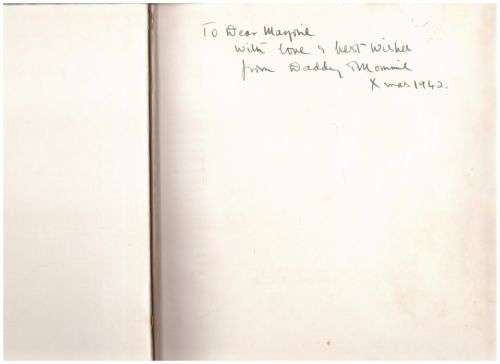 To Dear Marjorie
with love & best wishes
from Daddy & Mommie
Xmas 1942.